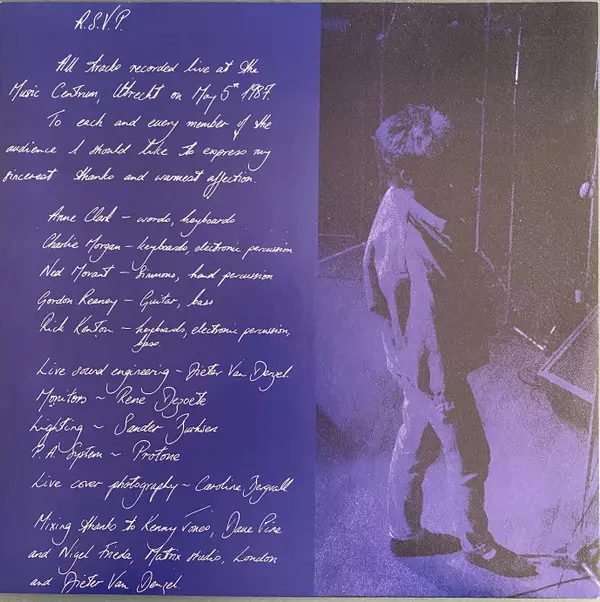 R.S.V.P.
All tracks recorded live at the
Music Centrum, Utrecht on May 5th 1987.
To each and every member of the
audience I should like to express my
sincerest thanks and warmest affection.
Anne Clark - words, keyboards
Charlie Morgan - keyboards, electronic percussion
Ned Morant - Simmons, hand percussion
Gordon Reaney - Guitar, bass
Rick Kenton - keyboards, electronic percussion,
bass.
Live sound engineering - Pieter Van Denzel.
Monitors ~ René Dezoete
Lighting ~ Sander
P.A. System ~ Protone
Live cover photography ~ Caroline Bergvall
Mixing thanks to Kenny Jones, Dane Pine
and Nigel Frieda, Matrix studio, London
and Pieter Van Denzel.